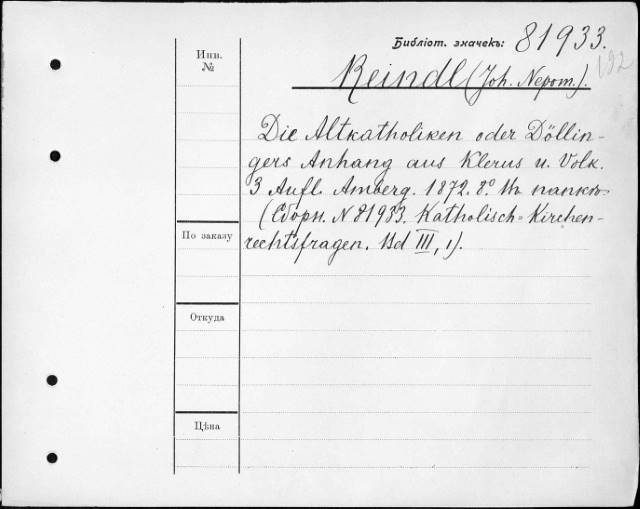 Библіот. значекъ: 81933.
192
Инв.
№
Reindl (Joh. Nepom.).
Die Altkatholiken oder Döllin-
gers Anhang aus Klerus u. Volk.
3 Aufl. Amberg. 1872. 8º.
(Сборн. N 81933. Katholisch-Kirchen-
rechtsfragen. Bd III, 1).
По заказу
Откуда
Цѣна